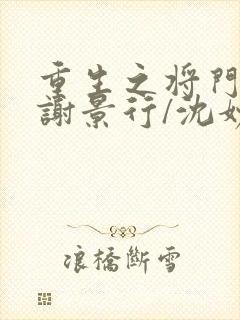 重生之将門
謝景行/沈妙
浪橋斷雪